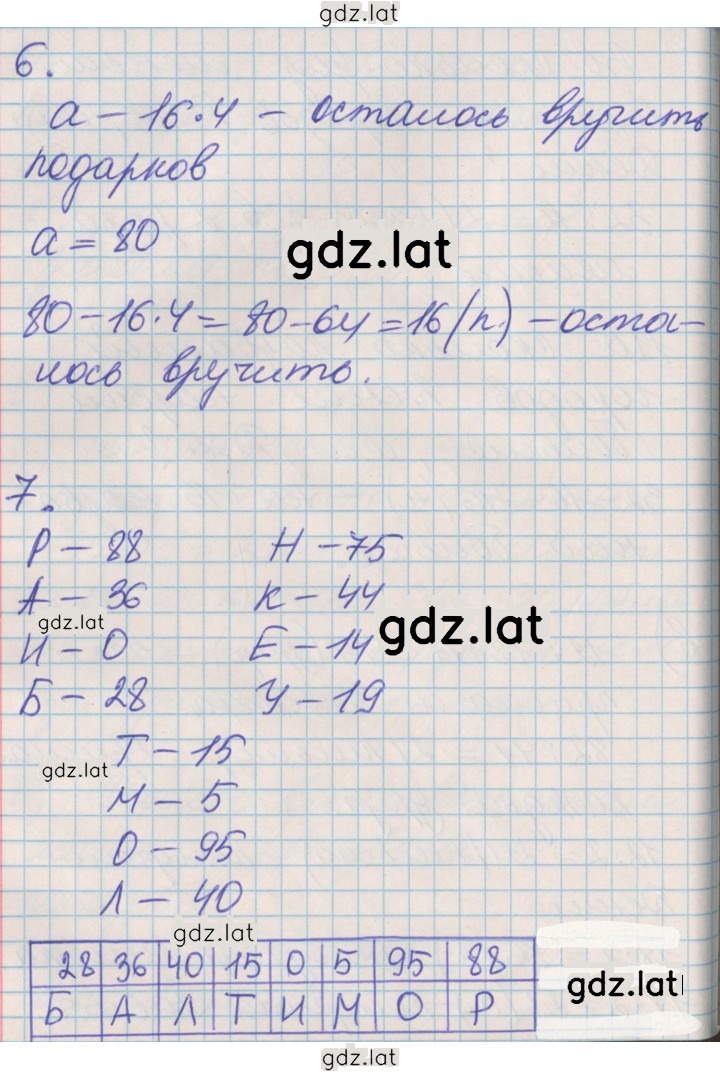 gdz.lat
6.
a - 16·4 - осталось вручить
подарков
a = 80
gdz.lat
80 - 16·4 = 80 - 64 = 16 (п.) - оста-
лось вручить.
7.
Р - 88 Н - 75
А - 36 К - 44
gdz.lat gdz.lat
И - 0 Е - 14
Б - 28 У - 19
Т - 15
gdz.lat
М - 5
О - 95
Л - 40
gdz.lat
28 36 40 15 0 5 95 88
gdz.lat
Б А Л Т И М О Р
gdz.lat